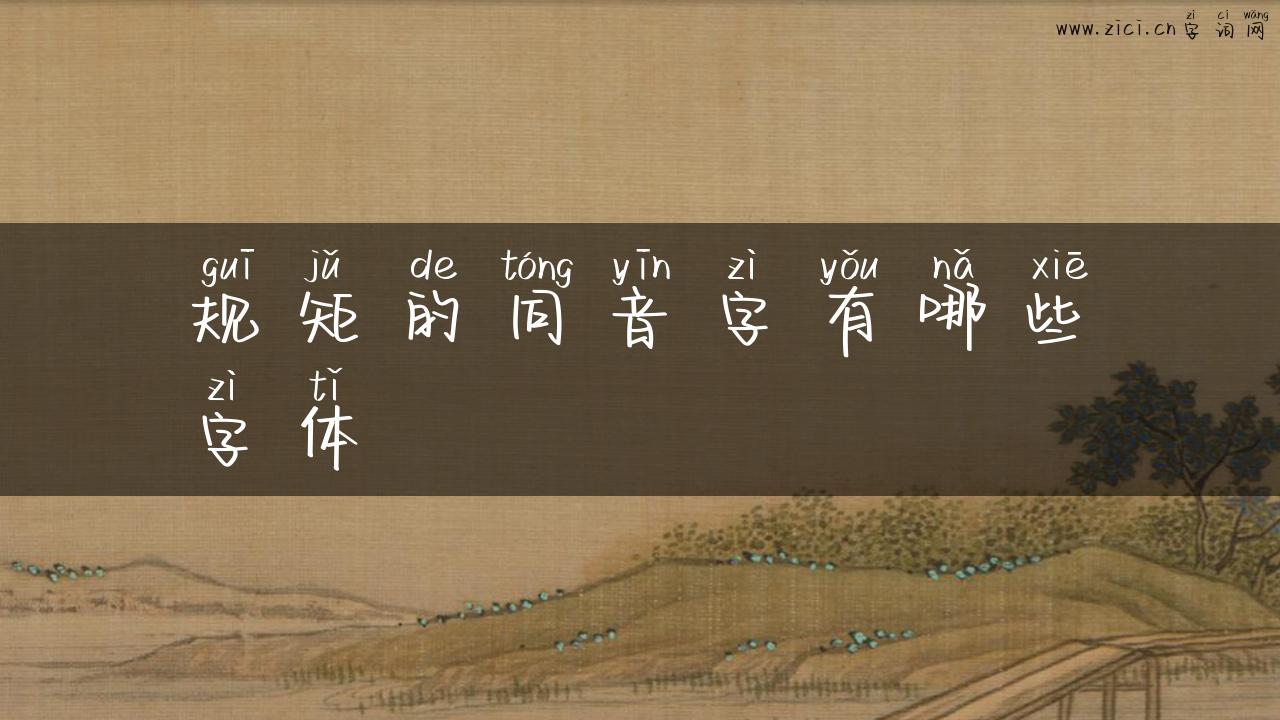 zì cí wǎng
www.zici.cn字词网
guī jǔ de tóng yīn zì yǒu nǎ xiē
规矩的同音字有哪些
zì tǐ
字体